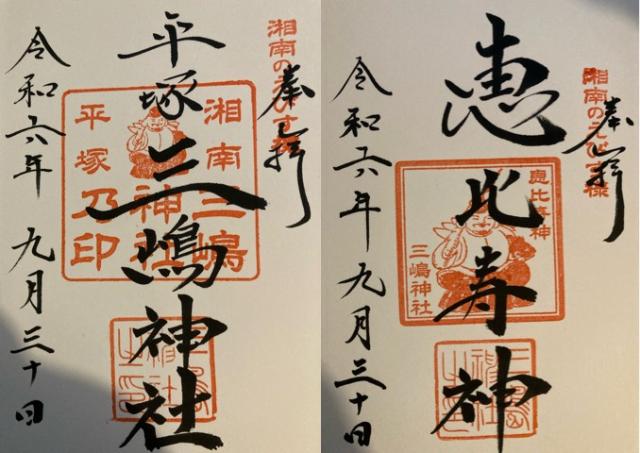 湘南のえびす様
奉拝
平塚三嶋神社
湘南三嶋
神社
平塚乃印
令和六年九月三十日
湘南のえびす様
奉拝
恵比寿神
恵比寿神
三嶋神社
令和六年九月三十日